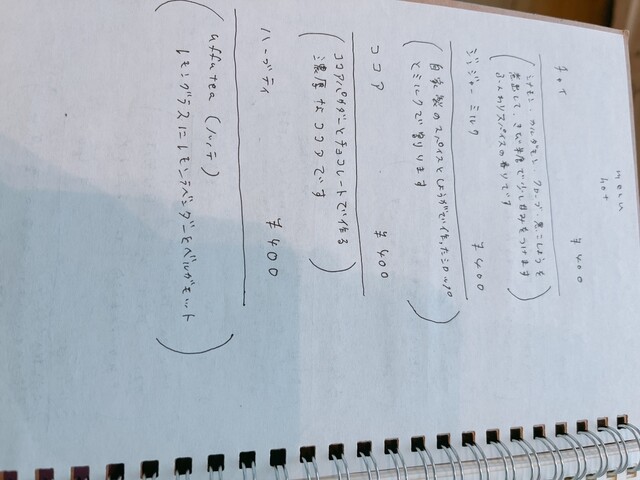 menu
hot
チャイ ¥400
(シナモン、カルダモン、クローブ、黒こしょうを
煮出して、きび糖で少し甘みをつけます
ふんわりスパイスの香りです)
ジンジャーミルク ¥400
(自家製のスパイスとしょうがで作ったシロップ
とミルクで割ります)
ココア ¥400
(ココアパウダーとチョコレートで作る
濃厚なココアです)
ハーブティ ¥400
(uffu tea (ノッテ)
レモングラスにレモンラベンダーとベルガモット)